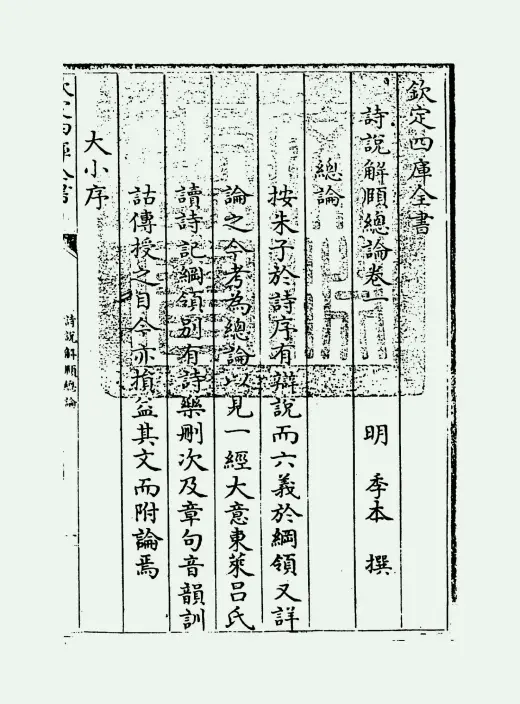 欽定四庫全書
詩說解頤總論卷一
明 季本 撰
總論
按朱子於詩序有辯說而六義於綱領又詳
論之今考為總論以見一經大意東萊呂氏
讀詩記綱領別有詩樂刪次及章句音韻訓
詁傳授之目今亦損益其文而附論焉
大小序
欽定四庫全書
詩說解頤總論